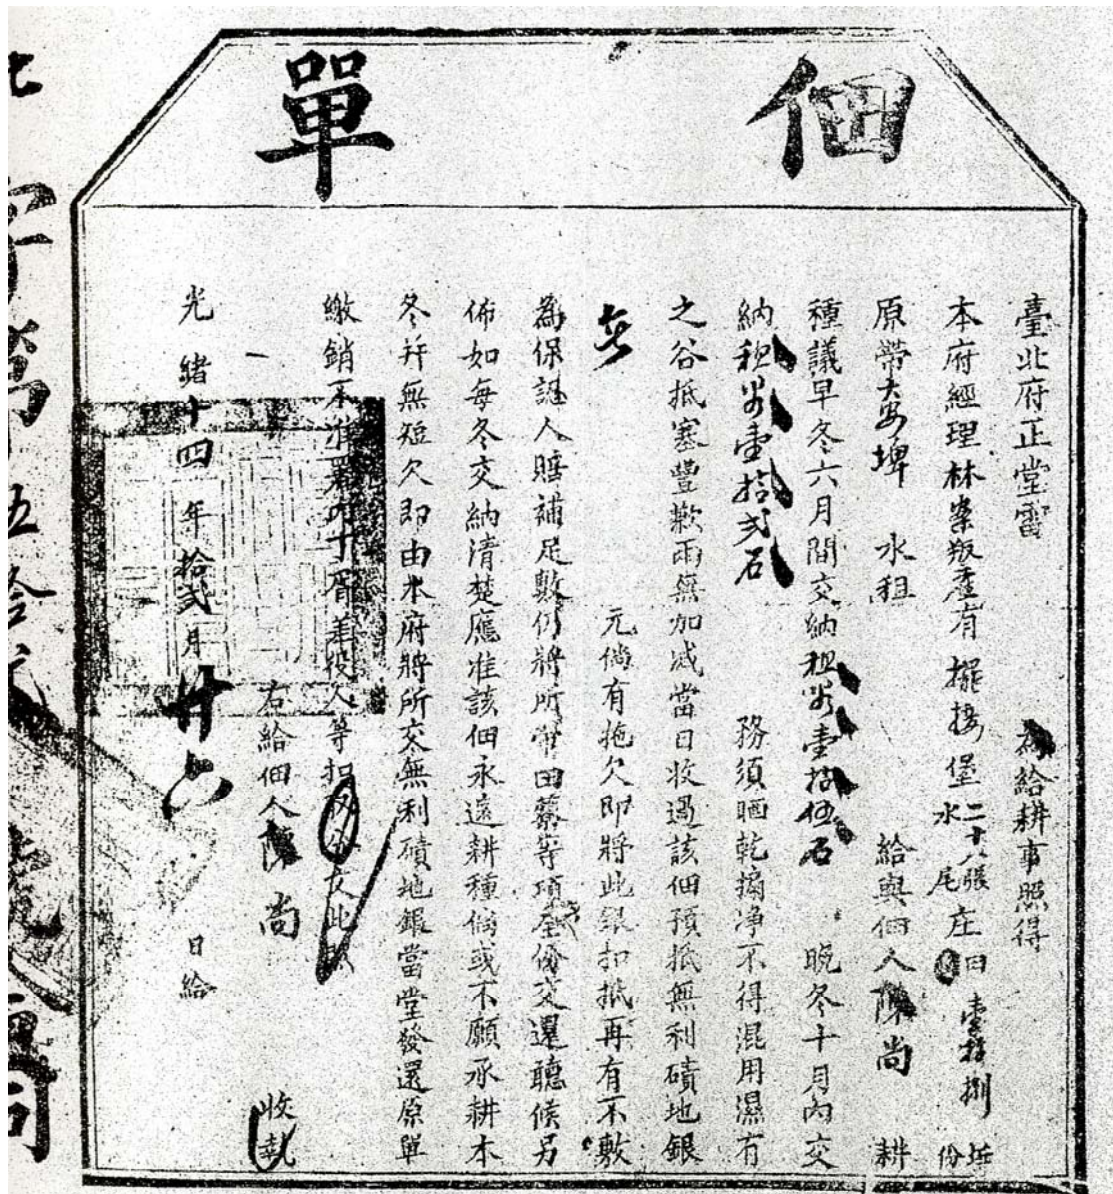 佃單
臺北府正堂雷　為給耕事照得
本府經理林案叛產有擺接堡二十八張水尾庄田　捌　份
原帶大安埤　水租　給與佃人陳尚　耕
種議早冬六月間交納租谷壹拾伍石　晚冬十月內交
納租谷壹拾弍石　務須晒乾搧净不得混用濕有
之谷抵塞豐歉兩無加減當日收過該佃預抵無利磧地銀
元倘有拖欠即將此銀扣抵再有不敷
為保認人賠補足數仍將所管田藔等項全份交還聽候另
佈如每冬交納清楚應准該佃永遠耕種倘或不願承耕本
冬并無短欠即由本府將所交無利磧地銀當堂發還原單
繳銷不准　胥差役人等　此照
右給佃人陳尚　收執
光緒十四年拾弍月廿六日給